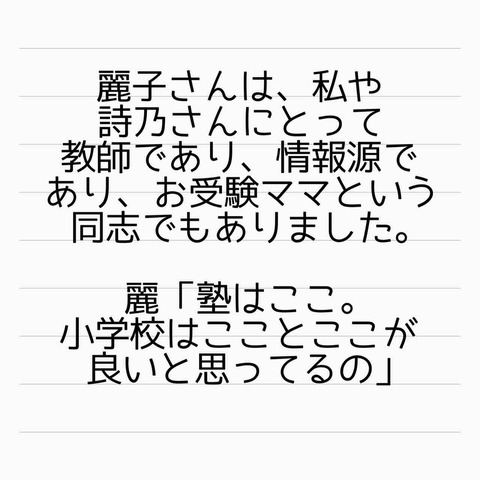 麗子さんは、私や
詩乃さんにとって
教師であり、情報源で
あり、お受験ママという
同志でもありました。
麗「塾はここ。
小学校はこことここが
良いと思ってるの」